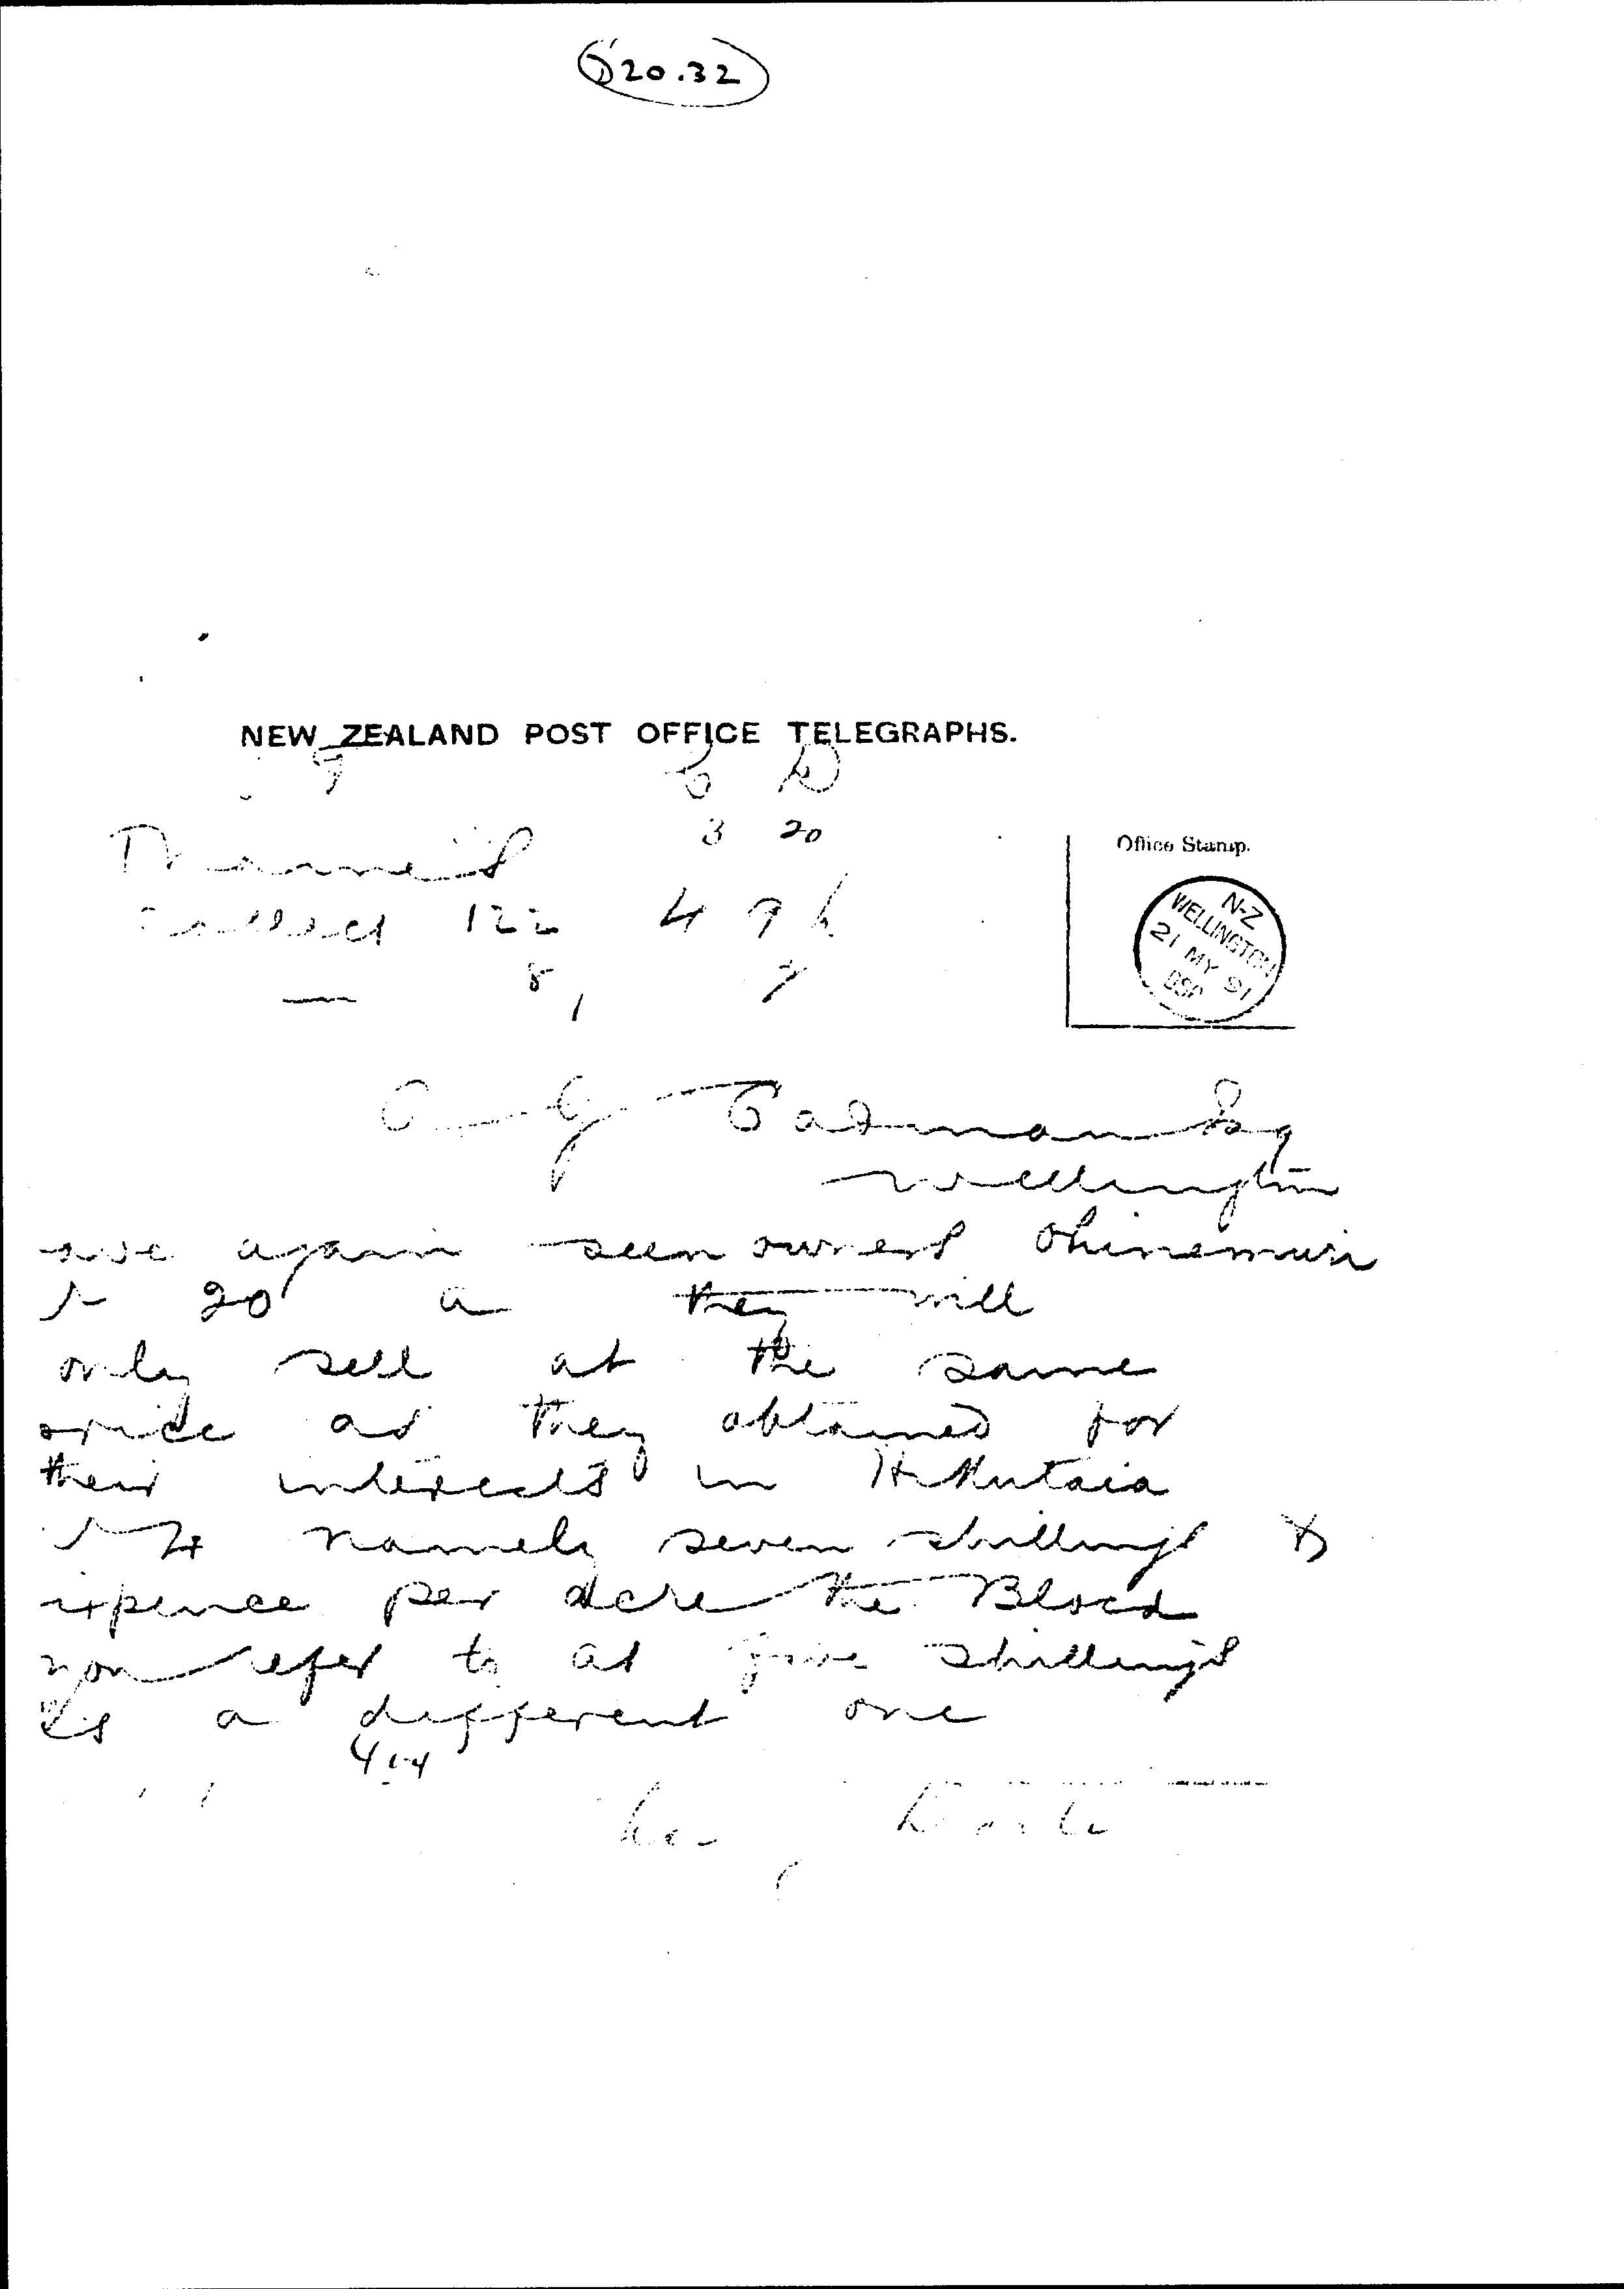 20.32
NEW ZEALAND POST OFFICE TELEGRAPHS.
3 20
122 4 9
8 1
Office Stamp.
N-Z
WELLINGTON
21 MY 91
Cadman Esq
Wellington
again seen owners Ohinemuri
20 a they will
only sell at the same
price as they obtained for
their interests in Hikutaia
namely seven shillings &
ixpence per acre the Block
you refer to at five shillings
is a different one